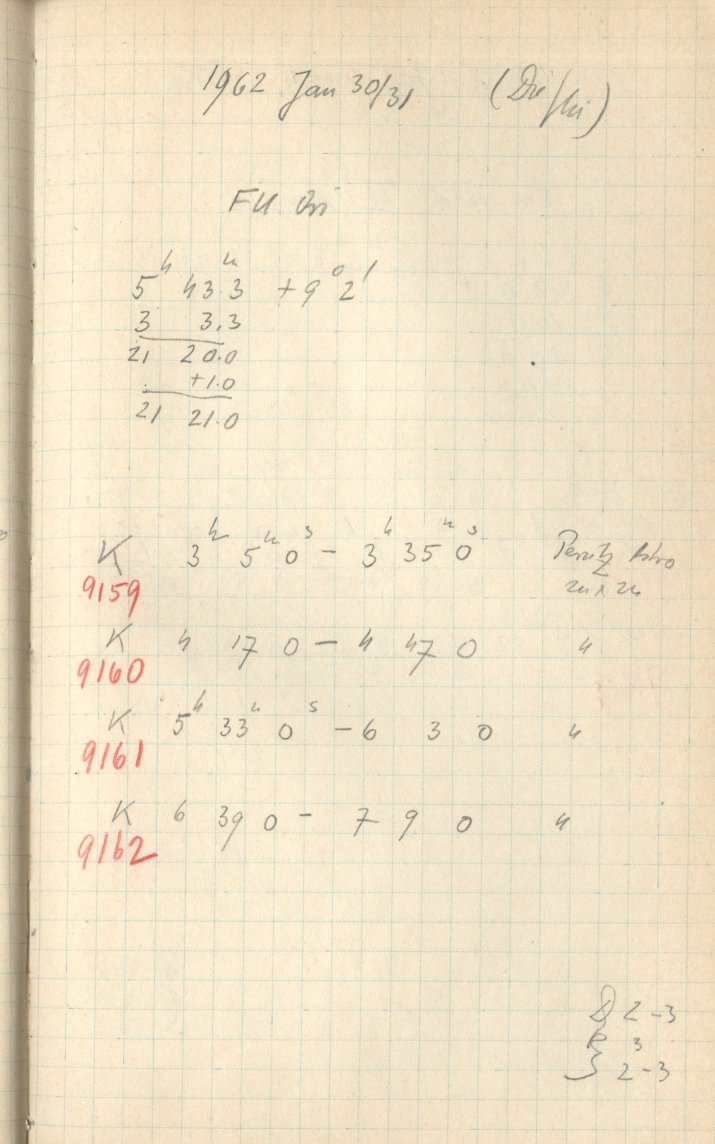 1962 Jan 30/31
FU Ori
5h 43.3m +9° 2'
3 3.3
21 20.0
+1.0
21 21.0
K 3h 5m 0s – 3h 35m 0s Perutz Astro
9159
K 4 17 0 – 4 47 0 "
9160
K 5h 33m 0s – 6 3 0 "
9161
K 6 39 0 – 7 9 0 "
9162
D 2-3
R 3
S 2-3